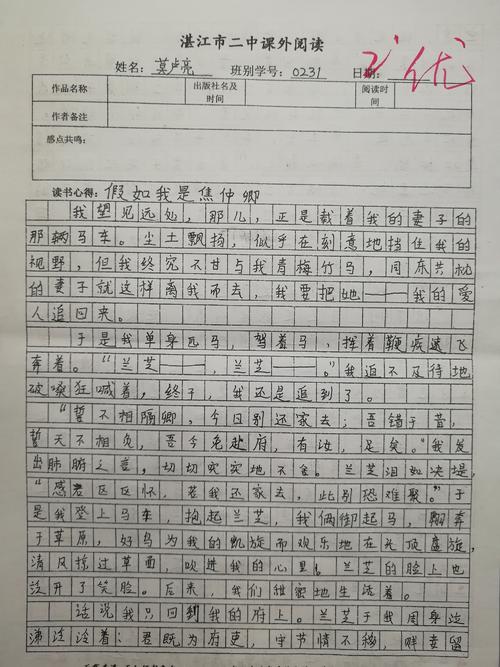 湛江市二中课外阅读
姓名：莫卢亮 班别学号：0231 日期： 优
作品名称 出版社名及时间 阅读时间
作者备注
感点共鸣：
读书心得：假如我是焦仲卿
我望见远处，那儿，正是载着我的妻子的
那辆马车。尘土飘扬，似乎在刻意地挡住我的
视野，但我终究不甘与我青梅竹马，同东共枕
的妻子就这样离我而去，我要把她——我的爱
人追回来。
于是我单身匹马，驾着马，挥着鞭疾速飞
奔着。“兰芝——，兰芝——。”我迫不及待地
破嗓狂喊着，终于，我还是追到了。
“誓不相隔卿，今日别还家去；吾错于昔，
誓天不相负，吾今免赴府，有汝，足矣。”我发
出肺腑之言，切切实实地不舍。兰芝泪如决堤，
“感君区区怀，若我还家去，此别恐难聚。”于
是我登上马车，抱起兰芝，我俩御起马，翱奔
于草原，好鸟为我的凯旋而欢乐地在头顶盘旋，
清风掠过草面，吹进我的心里。兰芝的脸上也
泛开了笑脸。后来，我们甜蜜地生活着。
话说我只回到我的府上。兰芝于我周身边
涕泣泠着：君既为府吏，守节情不移，贱妾留